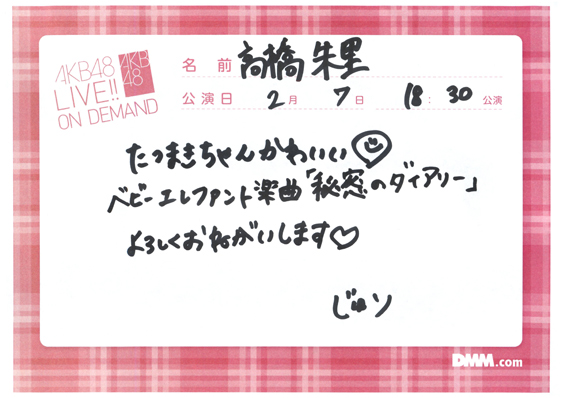 AKB48
LIVE!!
ON DEMAND
AKB
48
名前 高橋朱里
公演日 2月 7日 18:30公演
たつまきちゃんかわいい
ベビーエレファント楽曲「秘密のダイアリー」
よろしくおねがいします♡
じゅり
DMM.com